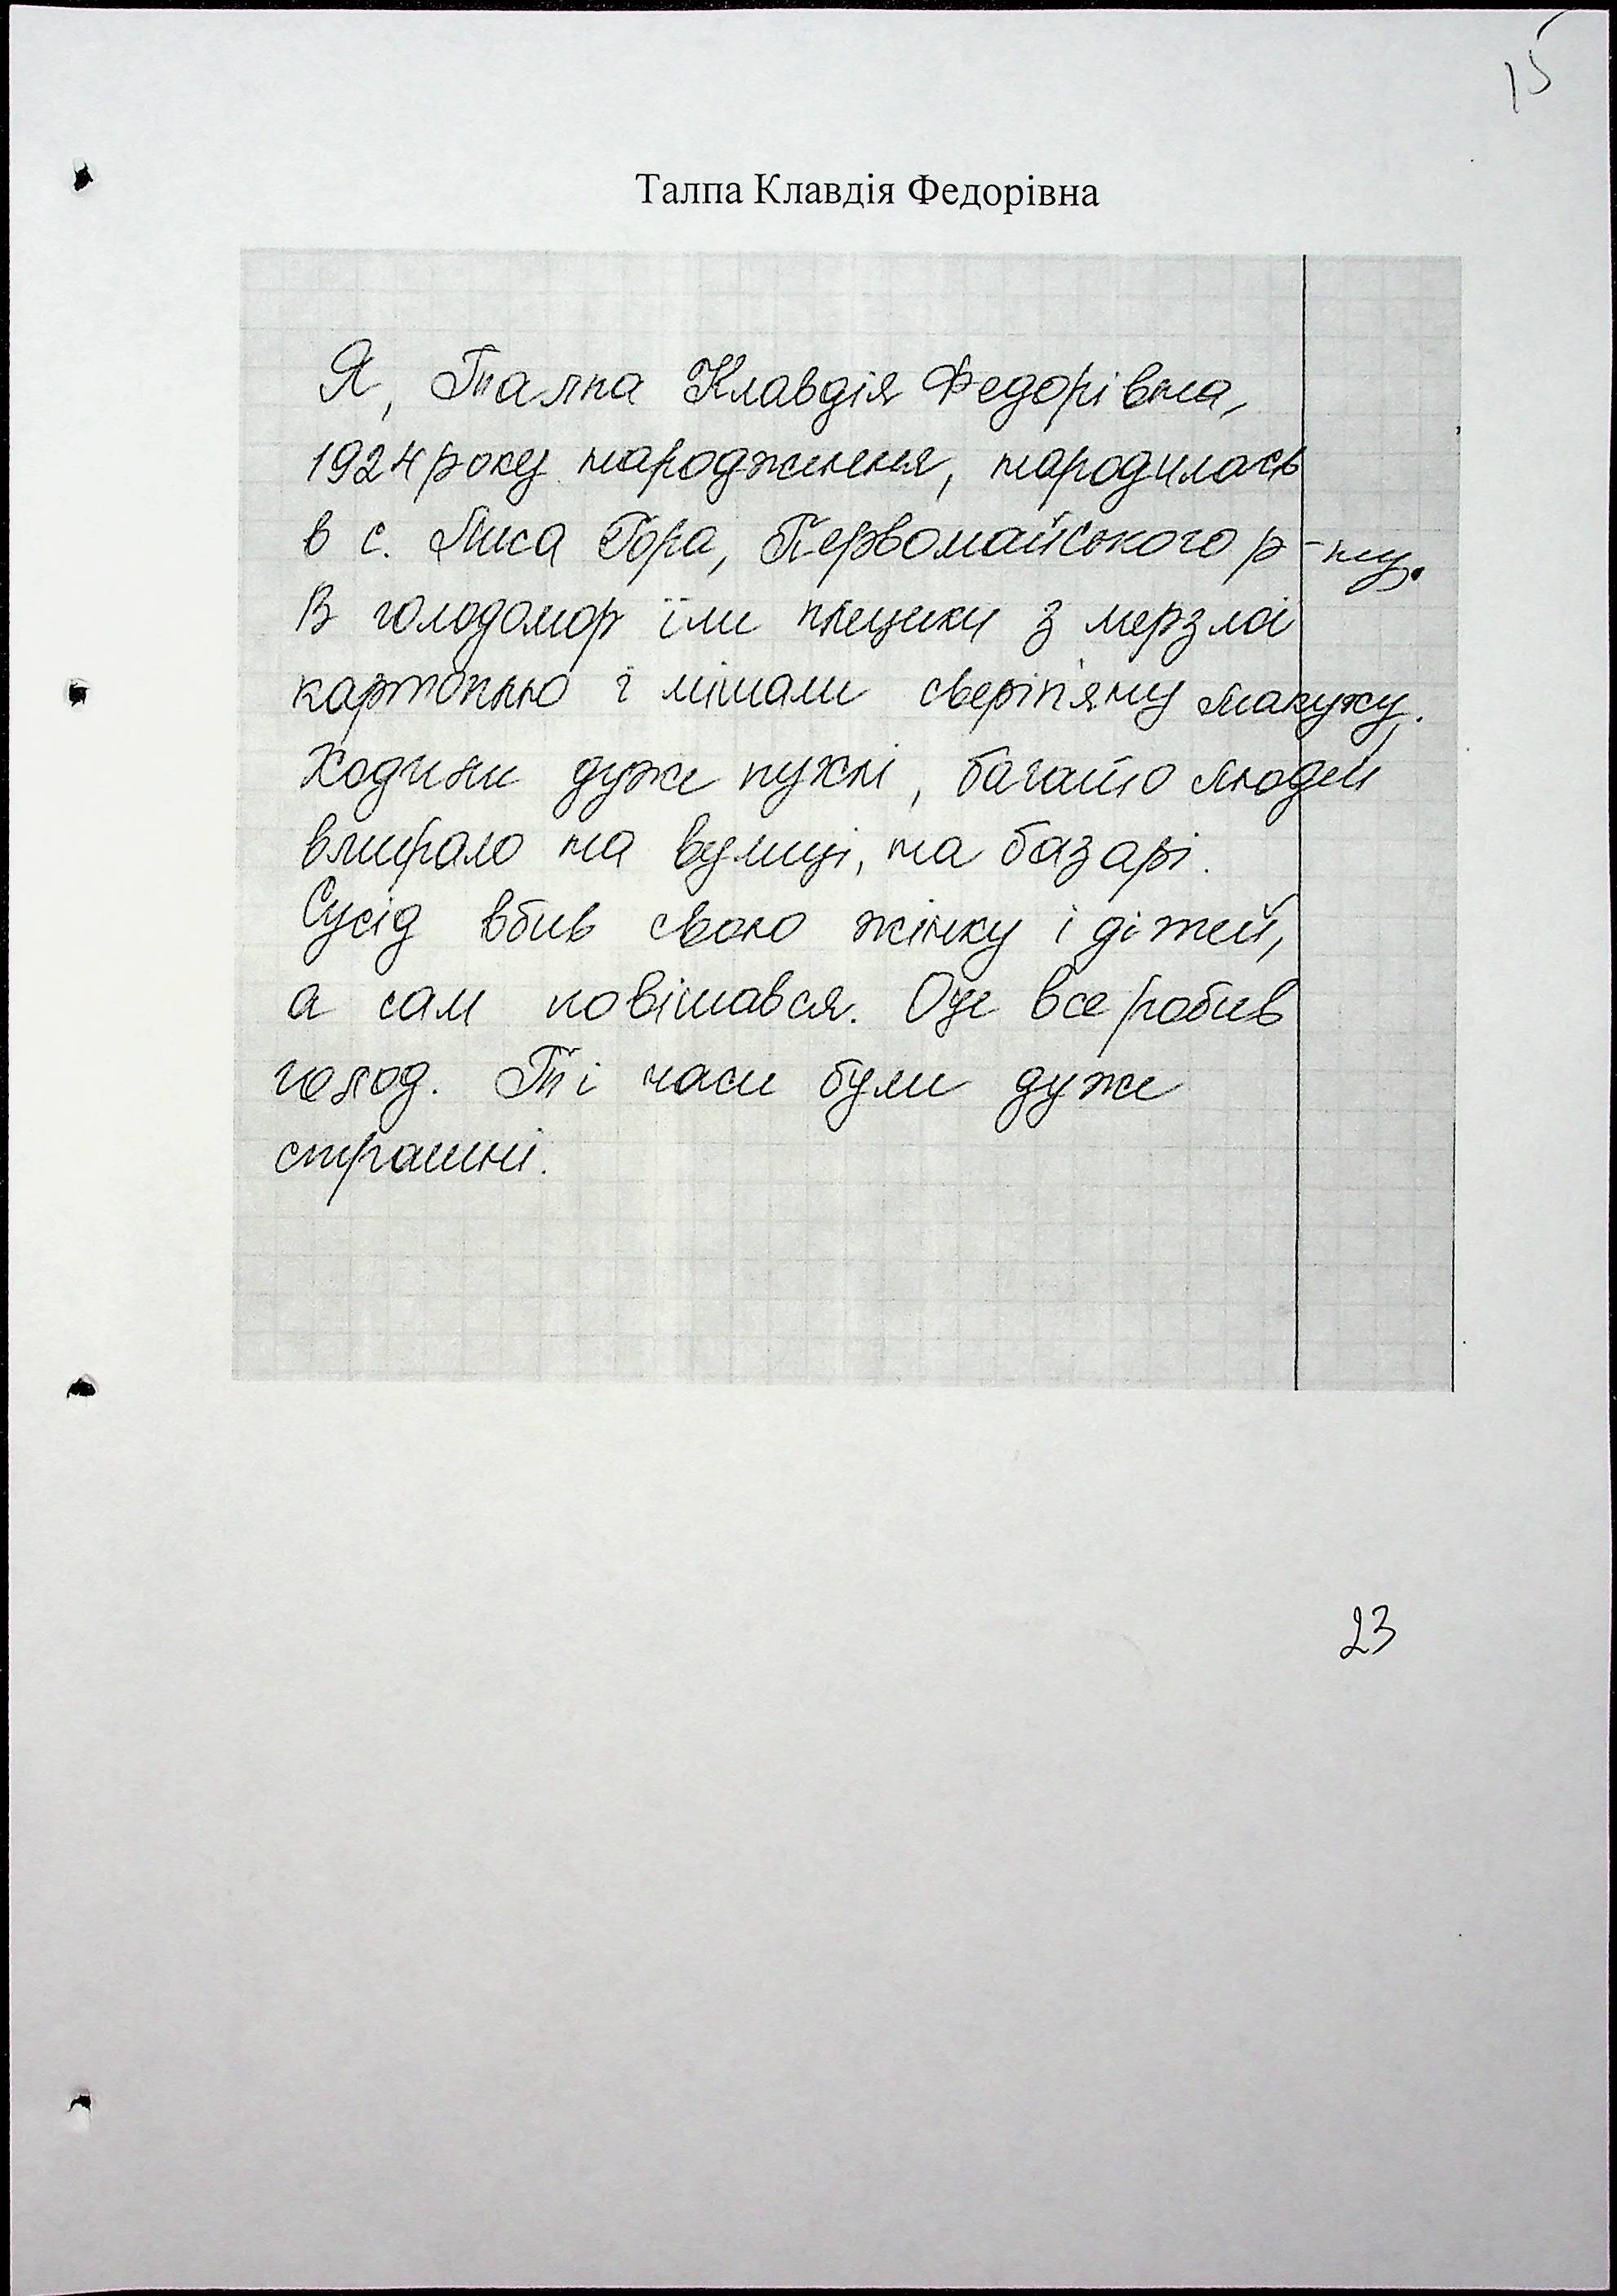 15
Талпа Клавдія Федорівна
Я, Талпа Клавдія Федорівна,
1924 року народження, народилась
в с. Лиса Гора, Первомайського р-ну.
В голодомор їли плецики з мерзлої
картоплю і мішали свиріп'яну макуху.
Ходили дуже пухлі, багато людей
вмирало на вулиці, на базарі.
Сусід вбив свою жінку і дітей,
а сам повішався. Оце все робив
голод. Ті часи були дуже
страшні.
23